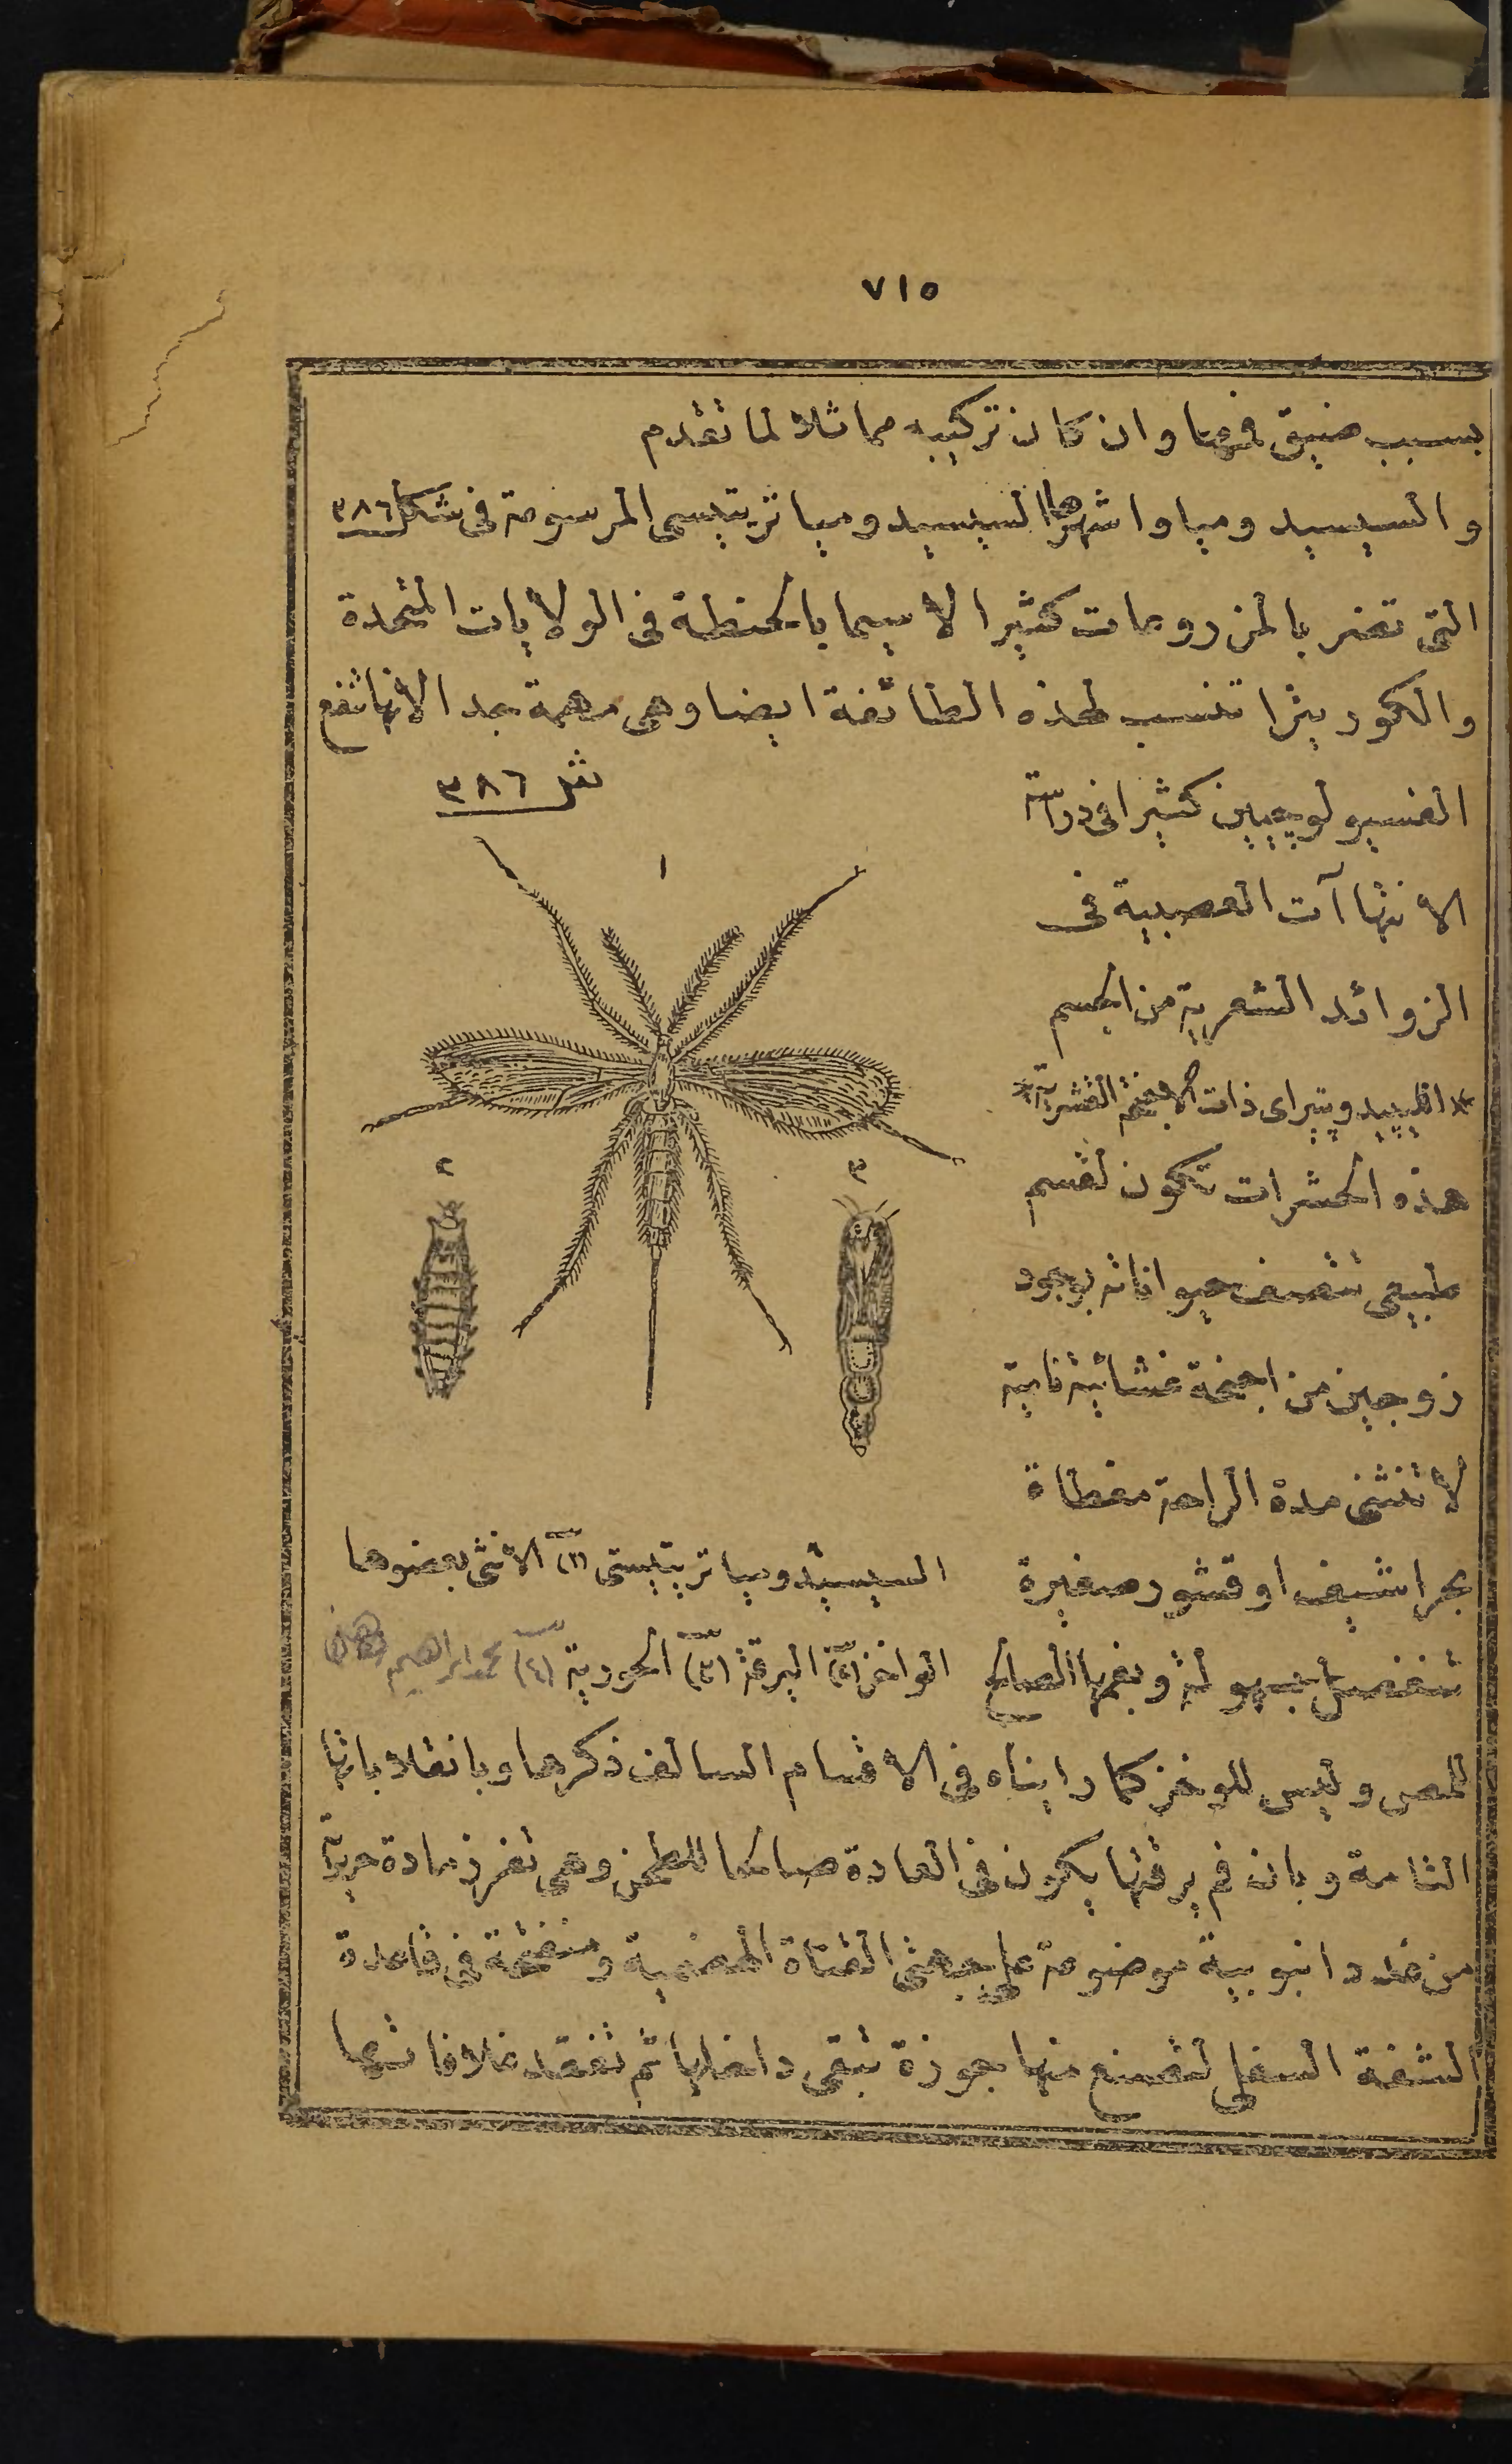 ٧١٥
بسبب ضيق فمها وان كان تركيبه مماثلا لما تقدم
والسيسيد وميا واشهرها السيسيد وميا تريتيسى المرسومة فى شكل ٣٨٦
التى تضر بالمزروعات كثيرا لاسيما بالحنطة فى الولايات المتحدة
والكوريثرا تنسب لهذه الطائفة ايضا وهى مهمة جدا لانها تنفع
الفسيولوجيين كثيرا فى دراسة
الانتهاآت العصبية فى
الزوائد الشعرية من الجسم
* الليپيدوپتيرا اى ذات الاجنحة القشرية *
هذه الحشرات تكون لقسم
طبيعى تتصف حيواناته بوجود
زوجين من اجنحة غشائية نامية
لا تنثنى مدة الراحة مغطاة
بحراشيف او قشور صغيرة
تنفصل بسهولة وبفمها الصالح
ش ٣٨٦
١
٢
٣
السيسيدوميا تريتيستى (١) الانثى بعضوها
الواخز (٢) اليرقة (٣) الحورية (٤) محمد ابراهيم
للمص وليس للوخز كما رايناه فى الاقسام السالف ذكرها وبانقلاباتها
التامة وبان فم يرقتها يكون فى العادة صالحا للطحن وهى تفرز مادة حريرية
من غدد انبوبية موضوعة على جهتى القناة الهضمية ومنفتحة فى قاعدة
الشفة السفلى لتصنع منها جوزة تبقى داخلها ثم تفقد غلافاتها